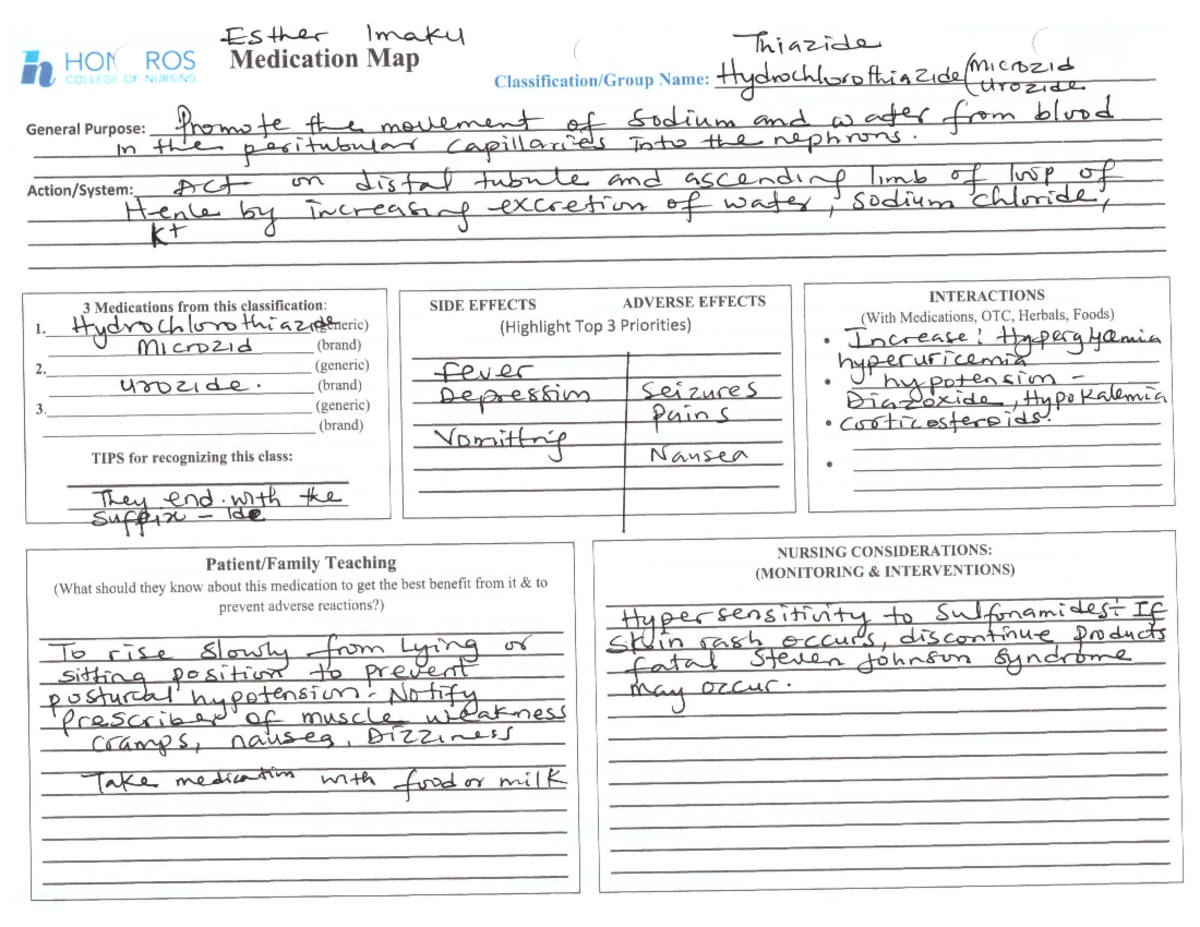 Esther Imaku
HON ROS
COLLEGE OF NURSING
Medication Map
Thiazide
Classification/Group Name: Hydrochlorothiazide (Microzid
Urozide
General Purpose: Promote the movement of Sodium and water from blood
in the peritubular capillaries into the nephrons.
Action/System: Act on distal tubule and ascending limb of loop of
Henle by increasing excretion of water, sodium chloride,
K+
3 Medications from this classification:
1. Hydrochlorothiazide (generic)
Microzid (brand)
2. (generic)
urozide. (brand)
3. (generic)
(brand)
TIPS for recognizing this class:
They end with the
suffix - Ide
SIDE EFFECTS ADVERSE EFFECTS
(Highlight Top 3 Priorities)
fever
Depression Seizures
Pains
Vomitting
Nausea
INTERACTIONS
(With Medications, OTC, Herbals, Foods)
• Increase: Hyperglycemia
hyperuricemia
• hypotension -
Diazoxide, Hypokalemia
• corticosteroids.
•
Patient/Family Teaching
(What should they know about this medication to get the best benefit from it & to
prevent adverse reactions?)
To rise slowly from lying or
sitting position to prevent
postural hypotension. Notify
prescriber of muscle weakness
cramps, nausea, Dizziness
Take medication with food or milk
NURSING CONSIDERATIONS:
(MONITORING & INTERVENTIONS)
Hypersensitivity to Sulfonamides - If
skin rash occurs, discontinue products
fatal Steven Johnson Syndrome
may occur.